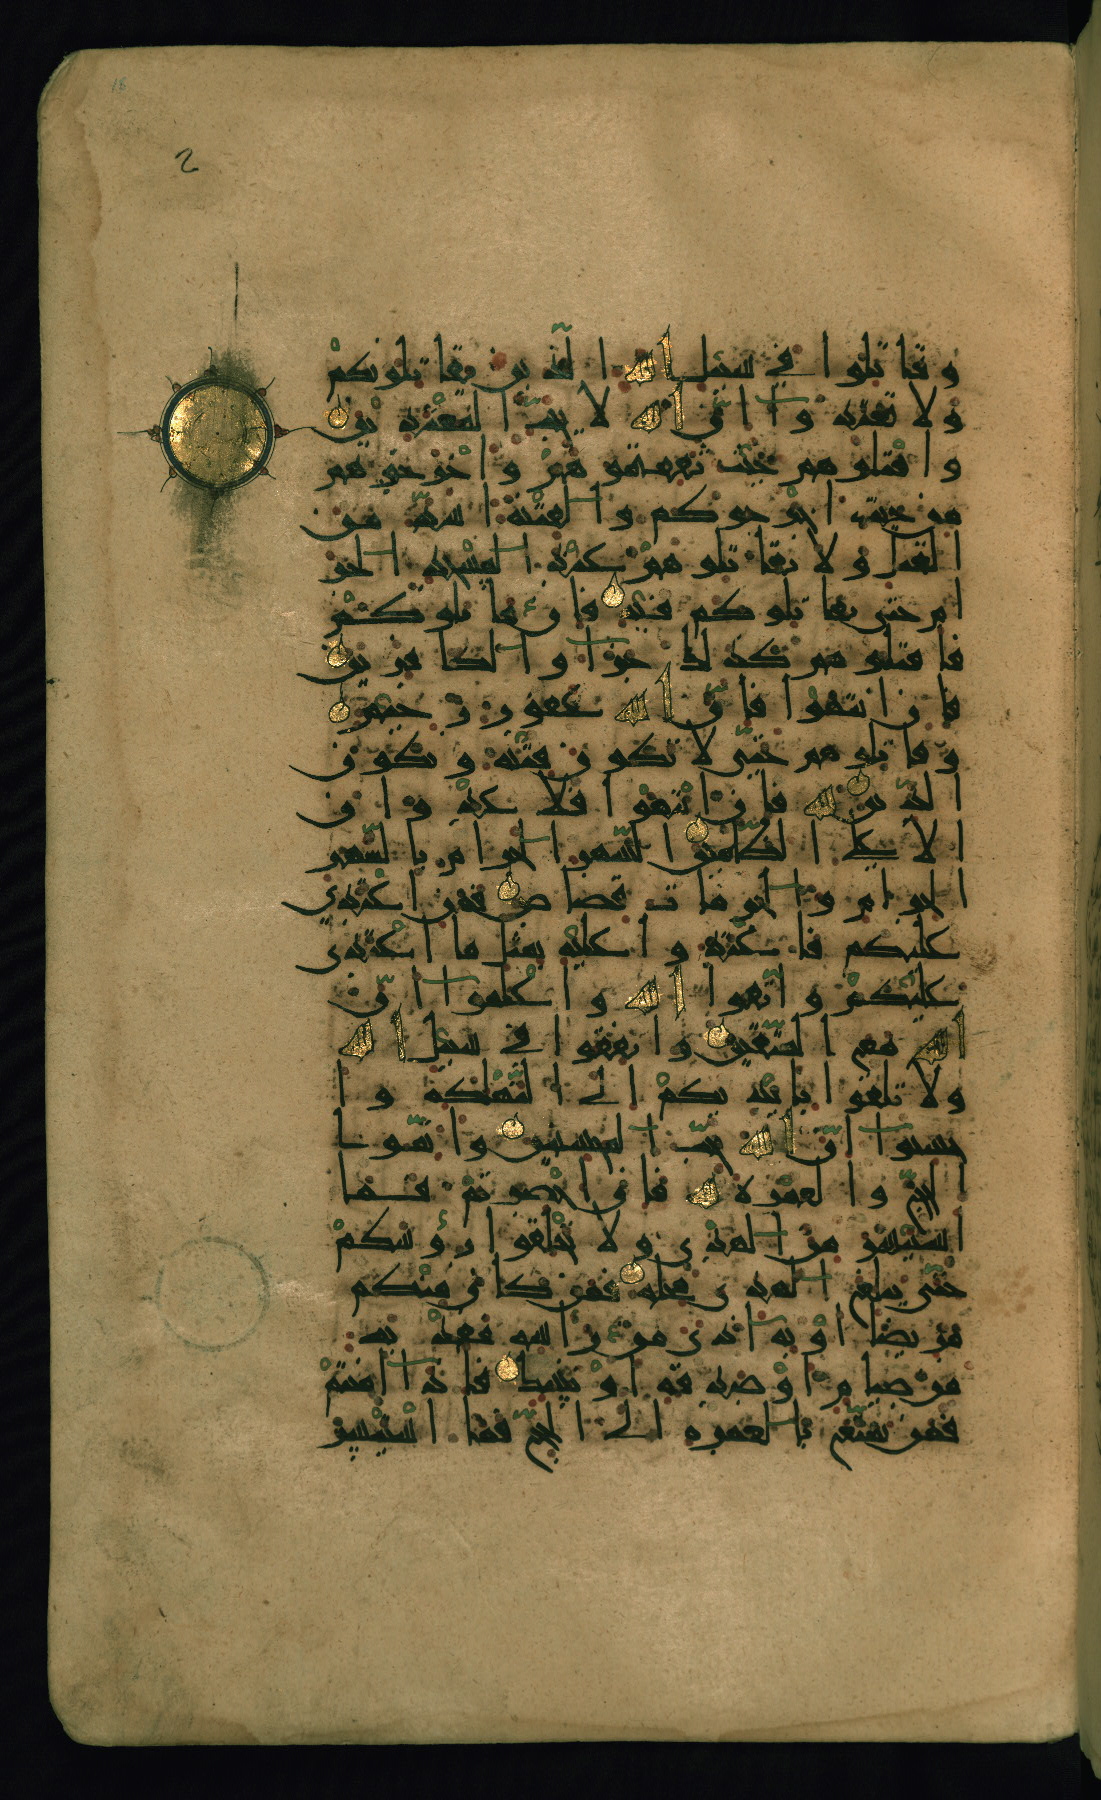 وقاتلوا في سبيل الله الذين يقاتلونكم
ولا تعتدوا ان الله لا يحب المعتدين
واقتلوهم حيث ثقفتموهم واخرجوهم
من حيث اخرجوكم والفتنة اشد من
القتل ولا تقاتلوهم عند المسجد الحر
ام حتى يقاتلوكم فيه فان قاتلوكم
فاقتلوهم كذلك جزا الكافرين
فان انتهوا فان الله غفور رحيم
وقاتلوهم حتى لا تكون فتنة ويكون
الدين لله فان انتهوا فلا عدون
الا على الظالمين الشهر الحرام بالشهر
الحرام والحرمات قصاص فمن اعتدى
عليكم فاعتدوا عليه بمثل ما اعتدى
عليكم واتقوا الله واعلموا ان
الله مع المتقين وانفقوا في سبيل الله
ولا تلقوا بايديكم الى التهلكة وا
حسنوا ان الله يحب المحسنين واتموا
الحج والعمرة لله فان احصرتم فما
استيسر من الهدى ولا تحلقوا رؤسكم
حتى يبلغ الهدى محله فمن كان منكم
مريضا او به اذى من راسه ففدية
من صيام او صدقة او نسك فاذا امنتم
فمن تمتع بالعمرة الى الحج فما استيسر
2